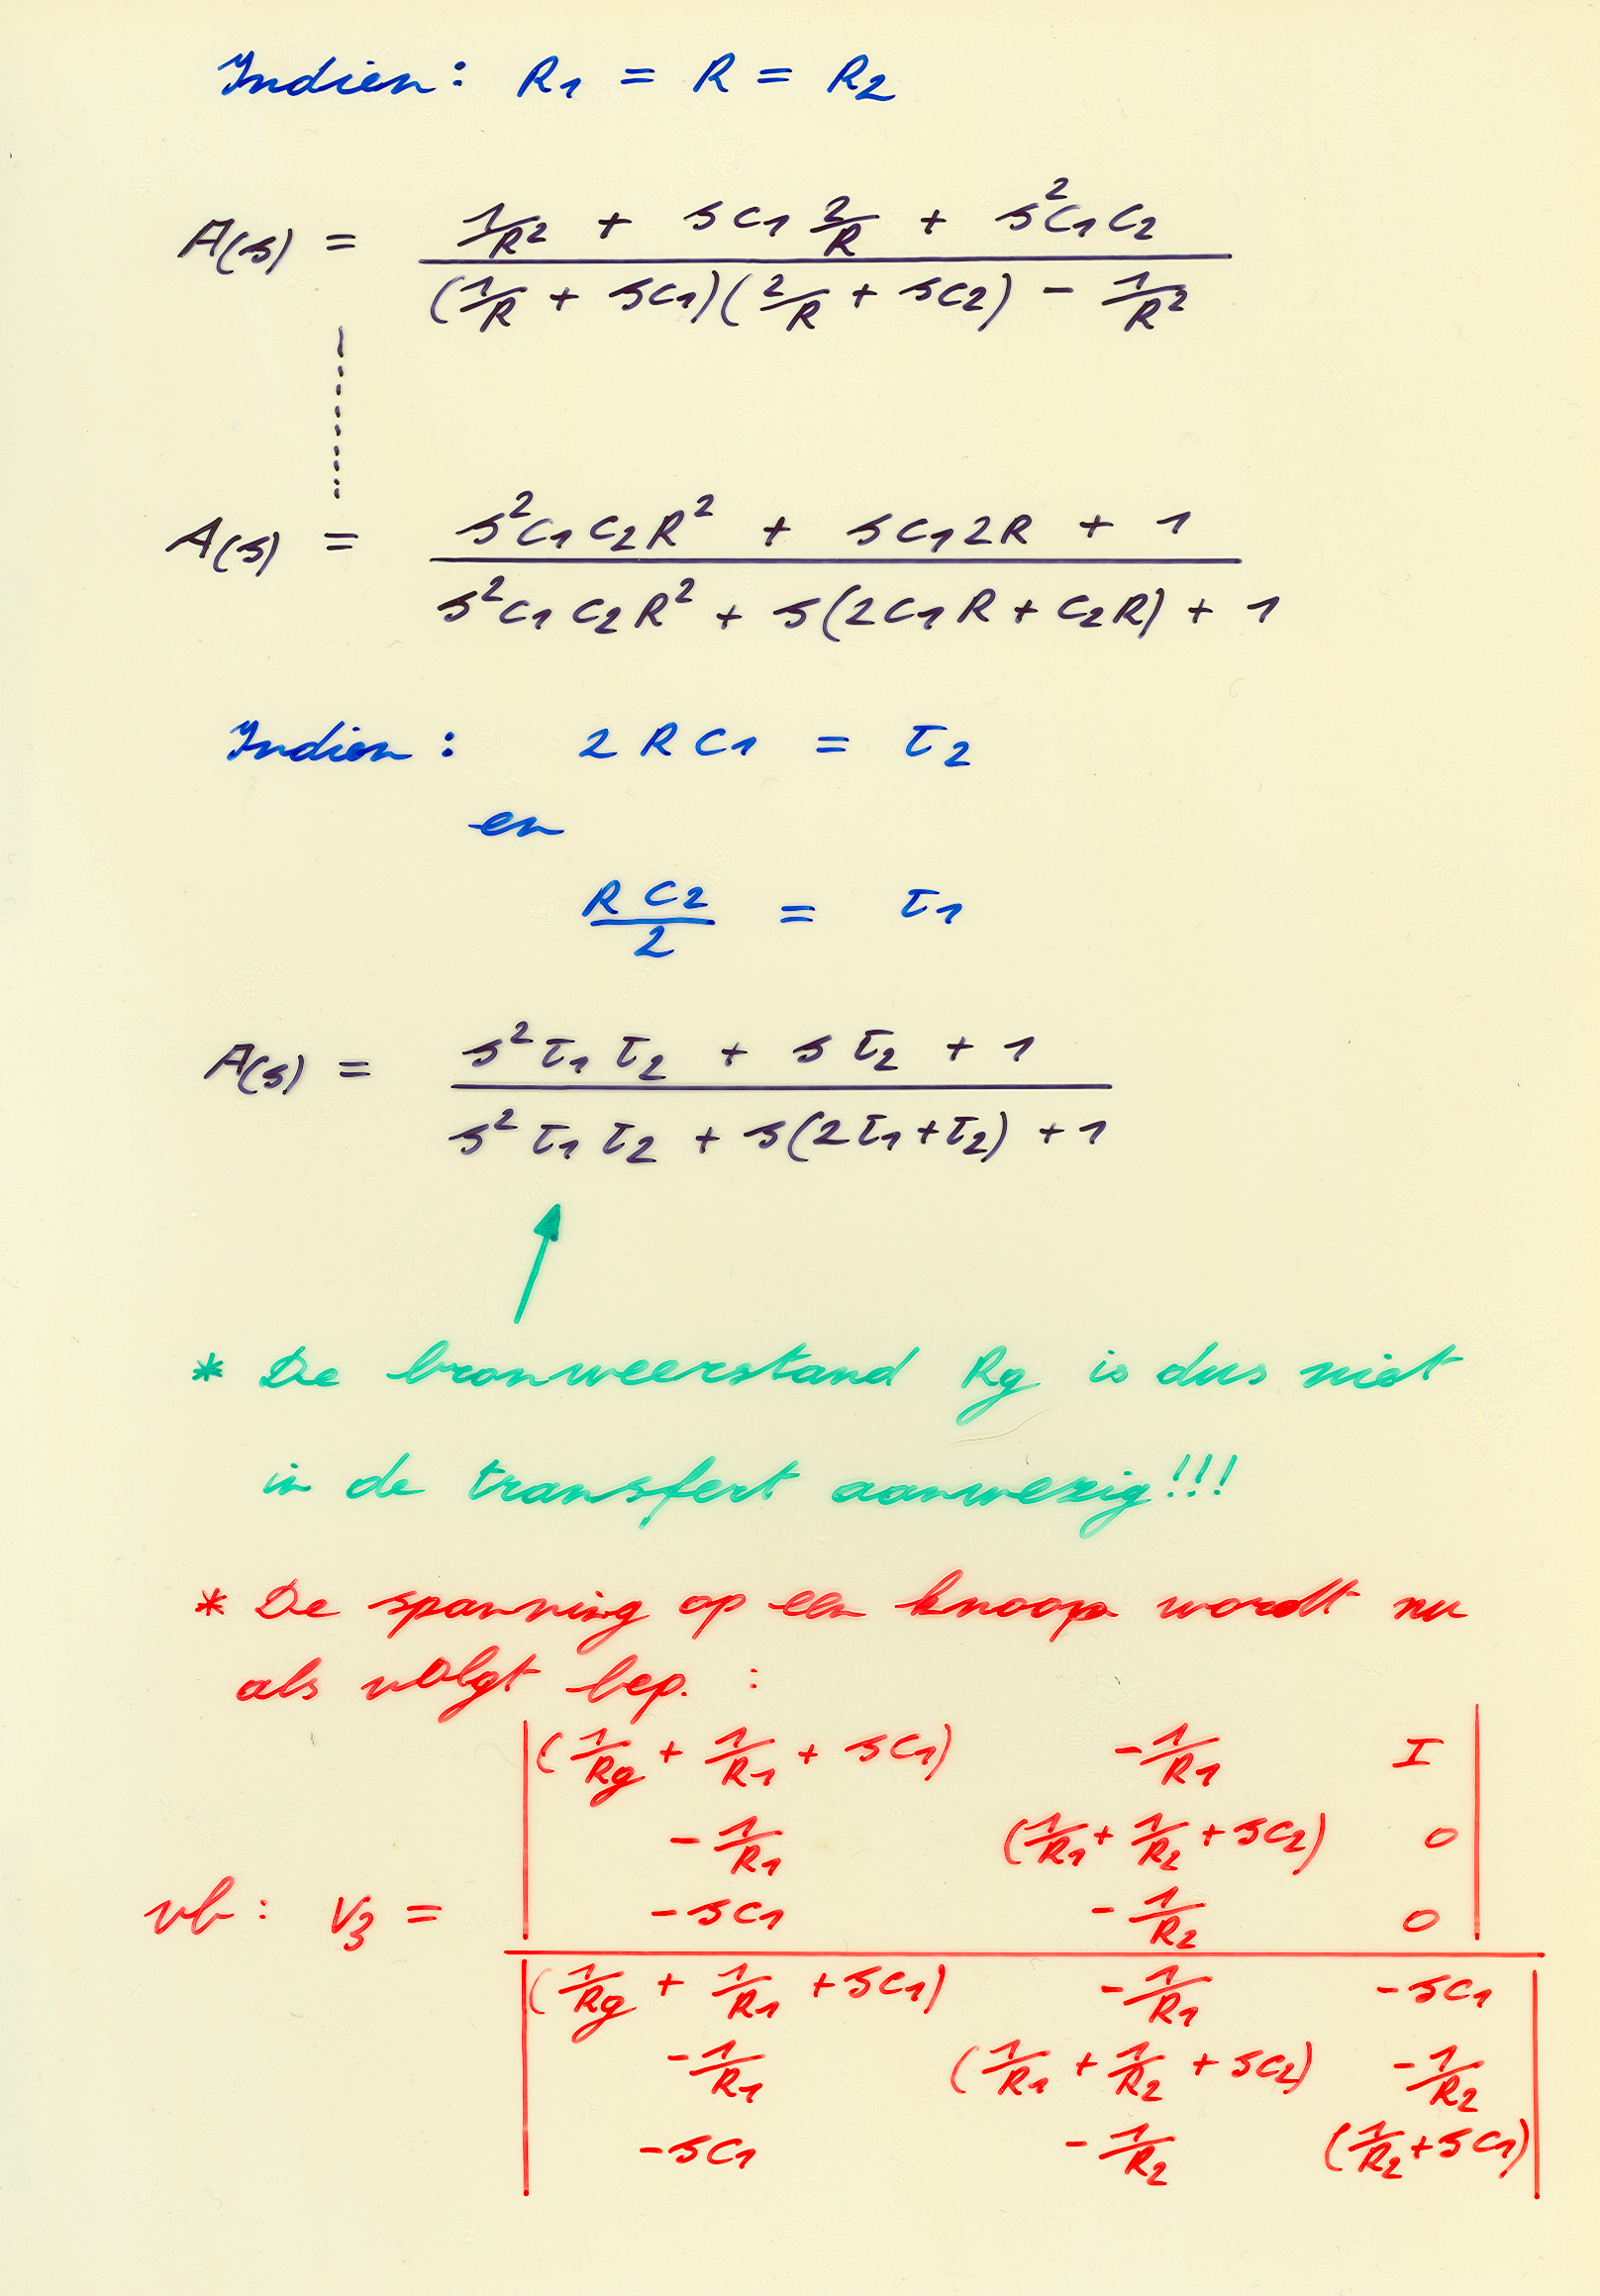 Indien: R1 = R = R2
A(s) = (1/R² + sC1 2/R + s²C1C2) / ((1/R + sC1)(2/R + sC2) - 1/R²)
A(s) = (s²C1C2R² + sC1 2R + 1) / (s²C1C2R² + s(2C1R + C2R) + 1)
Indien: 2RC1 = τ2
en
RC2/2 = τ1
A(s) = (s²τ1τ2 + sτ2 + 1) / (s²τ1τ2 + s(2τ1+τ2) + 1)
* De bronweerstand Rg is dus niet
in de transfert aanwezig!!!
* De spanning op een knoop wordt nu
als volgt bep. :
| (1/Rg + 1/R1 + sC1) -1/R1 I |
| -1/R1 (1/R1 + 1/R2 + sC2) 0 |
vb: V3 = | -sC1 -1/R2 0 |
| (1/Rg + 1/R1 + sC1) -1/R1 -sC1 |
| -1/R1 (1/R1 + 1/R2 + sC2) -1/R2 |
| -sC1 -1/R2 (1/R2 + sC1) |